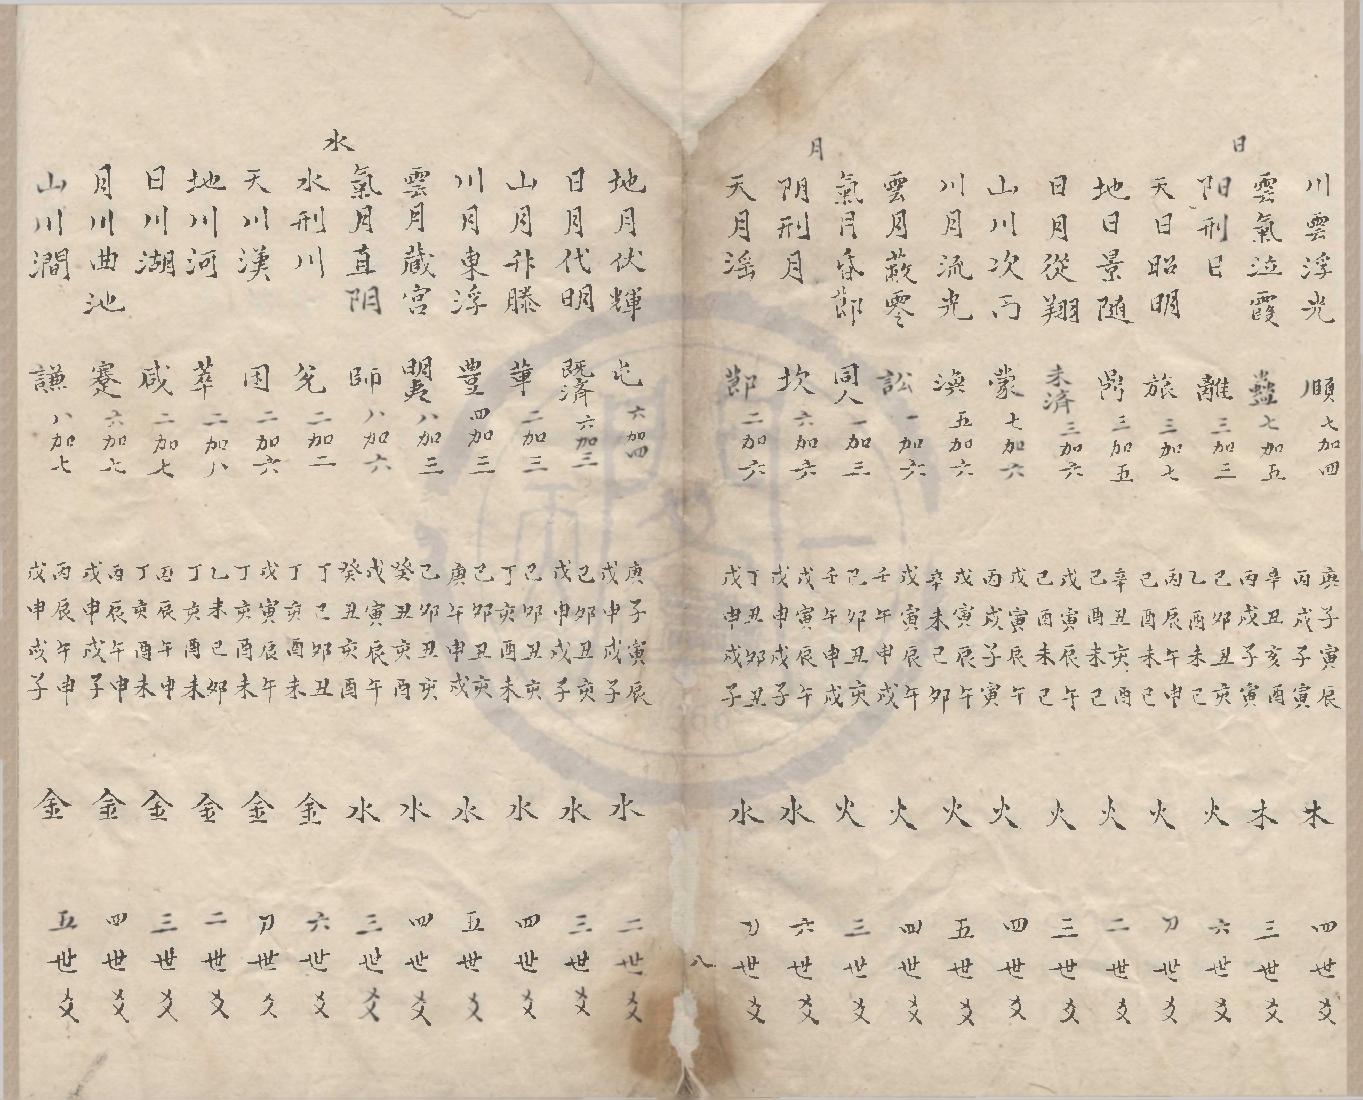 日
川雲浮光 順 七加四 庚子寅辰 丙戌子寅 木 四世爻
雲氣泣霞 蠱 七加五 辛丑亥酉 丙戌子寅 木 三世爻
阳刑日 離 三加三 己卯丑亥 乙酉未己 火 六世爻
天日昭明 旅 三加七 丙辰午申 己酉未己 火 刀世爻
地日景随 鼎 三加五 辛丑亥酉 己酉未己 火 二世爻
日月從翔 未濟 三加六 戊寅辰午 己酉未己 火 三世爻
山川次丙 蒙 七加六 戊寅辰午 丙戌子寅 火 四世爻
川月流光 渙 五加六 戊寅辰午 辛未己卯 火 五世爻
雲月蔽零 訟 一加六 戊寅辰午 壬午申戌 火 四世爻
月
氣月昏節 同人 一加三 己卯丑亥 壬午申戌 火 三世爻
阴刑月 坎 六加六 戊寅辰午 戊申戌子 水 六世爻
天月滛 節 二加六 丁丑卯丑 戊申戌子 水 刀世爻
八
地月伏輝 屯 六加四 庚子寅辰 戊申戌子 水 二世爻
日月代明 既濟 六加三 己卯丑亥 戊申戌子 水 三世爻
山月升滕 革 二加三 己卯丑亥 丁亥酉未 水 四世爻
川月東浮 豊 四加三 己卯丑亥 庚午申戌 水 五世爻
雲月蔵宮 明夷 八加三 己卯丑亥 癸丑亥酉 水 四世爻
水
氣月直阴 師 八加六 戊寅辰午 癸丑亥酉 水 三世爻
水刑川 兊 二加二 丁己卯丑 丁亥酉未 金 六世爻
天川漢 困 二加六 戊寅辰午 丁亥酉未 金 刀世爻
地川河 萃 二加八 乙未己卯 丁亥酉未 金 二世爻
日川湖 咸 二加七 丙辰午申 丁亥酉未 金 三世爻
月川曲池 蹇 六加七 丙辰午申 戊申戌子 金 四世爻
山川澗 謙 八加七 丙辰午申 戊申戌子 金 五世爻